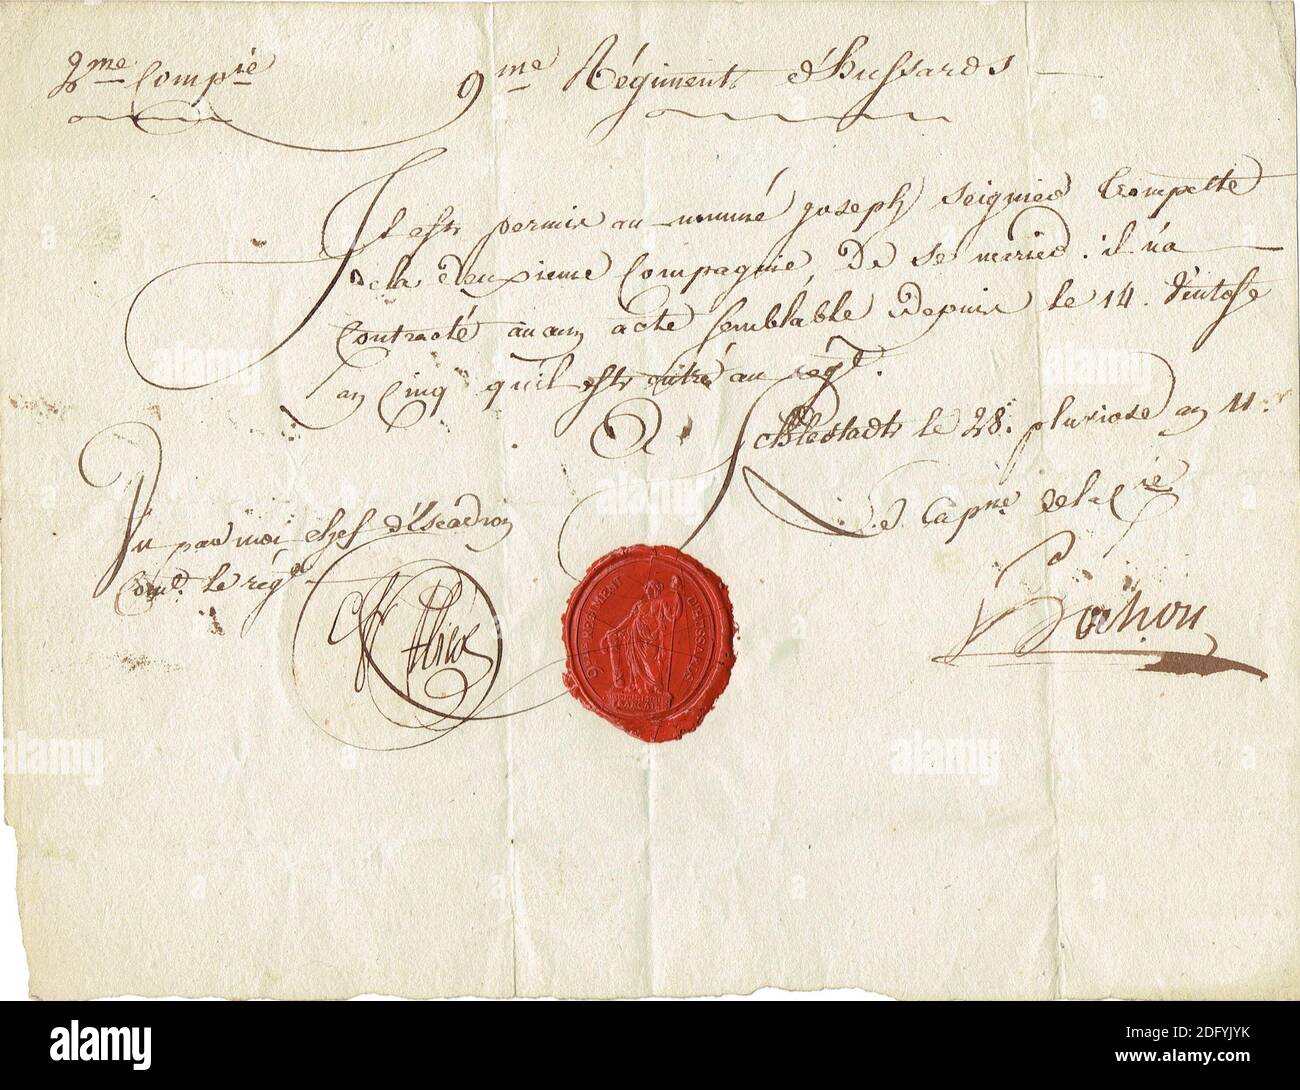 2me Compie 9me Régiment d'hussards
Il est permis au nommé joseph seignier trompette
de la deuxieme Compagnie, de se marier. il n'a
Contracté aucun acte semblable depuis le 14. Ventose
an Cinq qu'il est entré au régt.
A Schlestadt le 28. pluviose an 11.
Le Capne. de la Cie
Vu par moi chef d'Escadron
Comdt. le régt.
Bochon
9E REGIMENT D'HUSSARDS
alamy
Image ID: 2DFYJYK
www.alamy.com